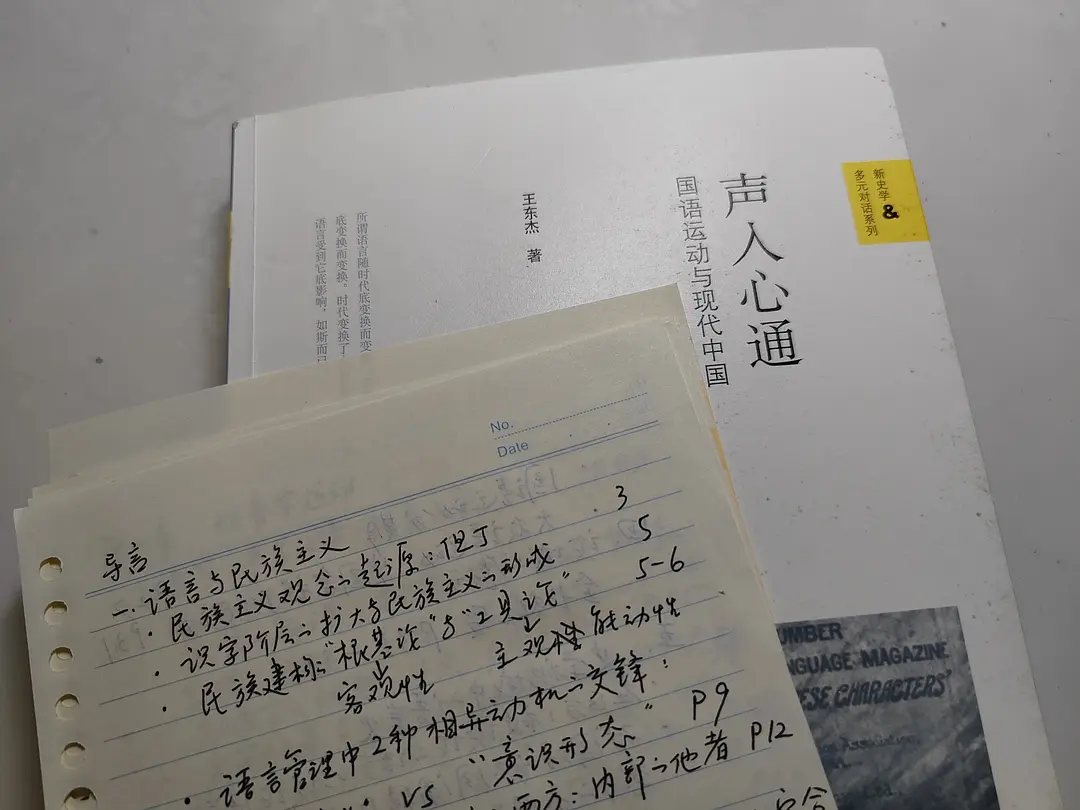 声入心通
国语运动与现代中国
王东杰 著
新史学&
多元对话系列
所谓语言随时代底变换而变
底变换而变换，时代变换了
语言受到它底影响，如斯而已
No.
Date
导言
一.语言与民族主义 3
·民族主义观念的起源：但丁 5
·识字阶层的扩大与民族主义的形成 5-6
·民族建构："根基论"与"工具论"
客观性 主观性 能动性
·语言管理中2种相异动机的交锋：
vs "意识形态" P9
西方：内部的他者 P12
UMBER
NGUAGE MAGAZINE
ESE CHARACTERS'
Association,